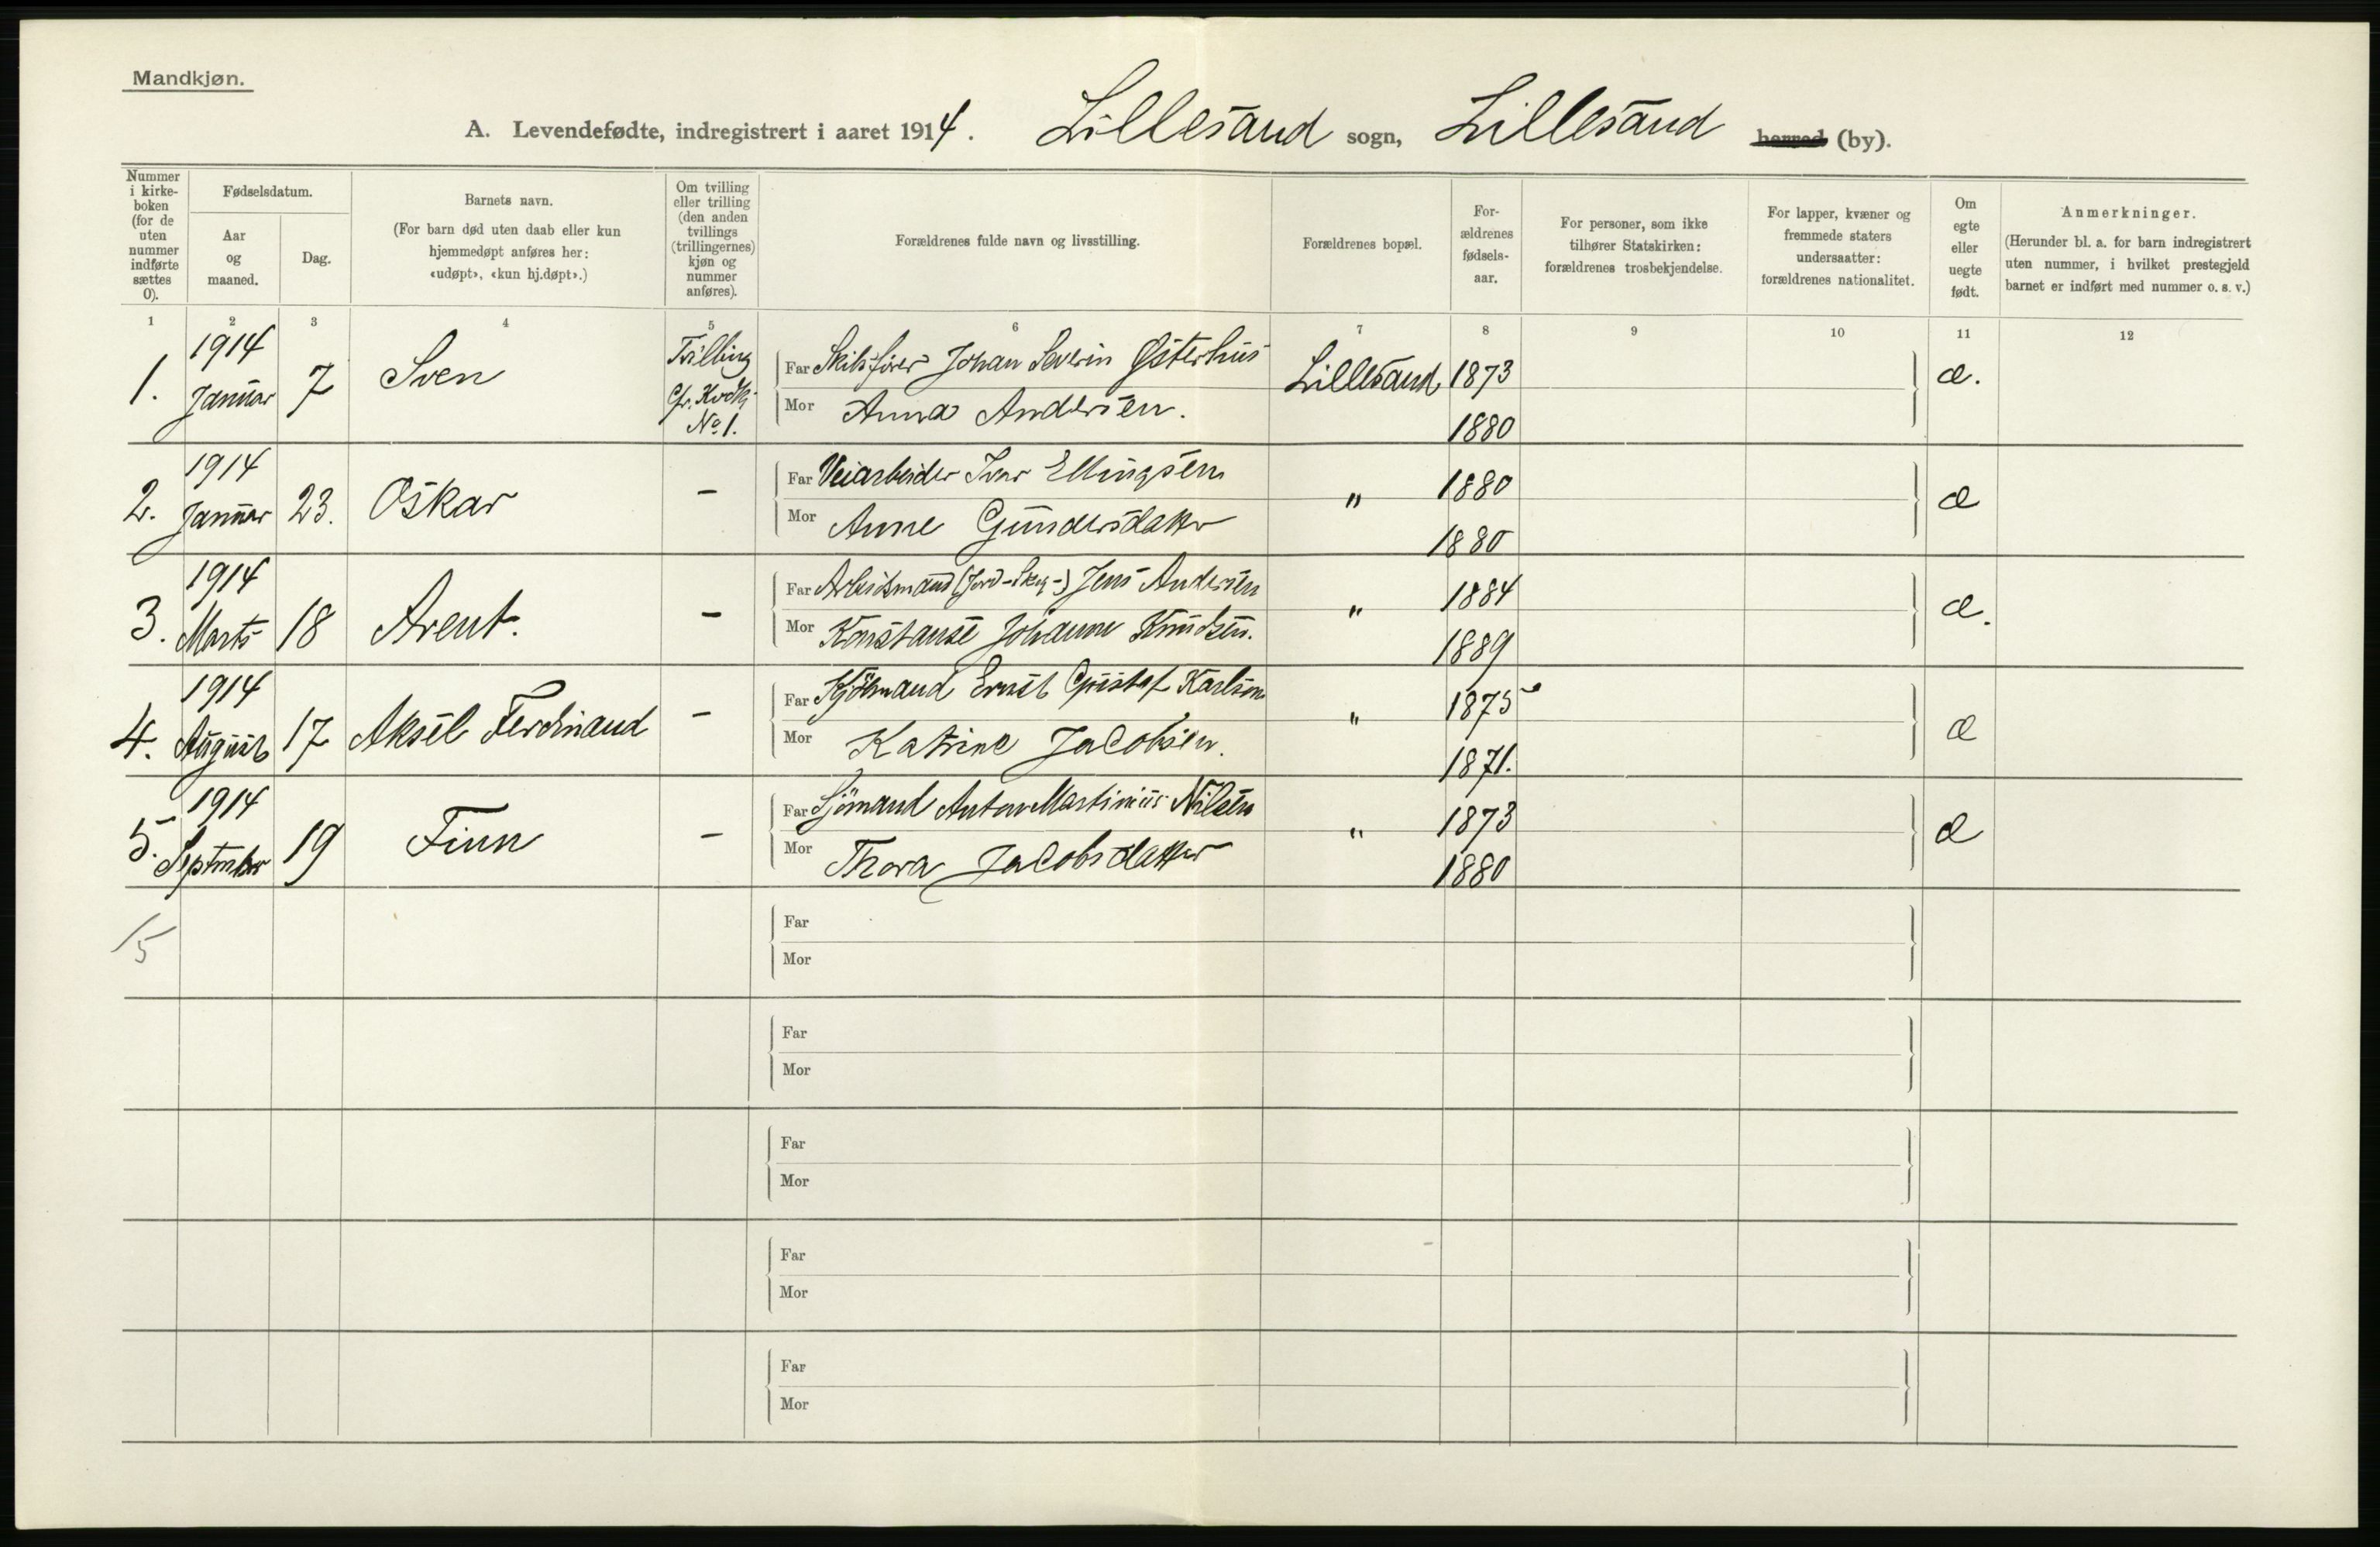 Mandkjøn.
A. Levendefødte, indregistrert i aaret 1914. Lillesand sogn, Lillesand herred (by).
Nummer i kirke- boken (for de uten nummer indførte sættes 0).
Fødselsdatum.
Aar og maaned.
Dag.
Barnets navn.
(For barn død uten daab eller kun hjemmedøpt anføres her: «udøpt», «kun hj.døpt».)
Om tvilling eller trilling (den anden tvillings (trillingernes) kjøn og nummer anføres).
Forældrenes fulde navn og livsstilling.
Forældrenes bopæl.
For- ældrenes fødsels- aar.
For personer, som ikke tilhører Statskirken: forældrenes trosbekjendelse.
For lapper, kvæner og fremmede staters undersaatter: forældrenes nationalitet.
Om egte eller uegte født.
Anmerkninger.
(Herunder bl. a. for barn indregistrert uten nummer, i hvilket prestegjeld barnet er indført med nummer o. s. v.)
1 2 3 4 5 6 7 8 9 10 11 12
1. 1914 Januar 7 Sven Tvilling Cfr. Kvdkj. No 1. Far Skibsfører Johan Severin Østerhus Lillesand 1873 æ.
Mor Anna Andersen. 1880
2. 1914 Januar 23. Oskar - Far Veiarbeider Ivar Ellingsen " 1880 æ
Mor Anne Gundersdatter 1880
3. 1914 Marts 18 Arent. - Far Arbeidsmand (Jord-Skog-) Jens Andersen " 1884 æ.
Mor Konstanse Johanne Knudsen. 1889
4. 1914 August 17 Aksel Ferdinand - Far Kjøbmand Ernst Gustaf Karlson " 1875 æ
Mor Katrine Jacobsen. 1871.
5. 1914 September 19 Finn - Far Sjömand Anton Martinius Nilsen " 1873 æ
Mor Thora Jacobsdatter 1880
/5
Far
Mor
Far
Mor
Far
Mor
Far
Mor
Far
Mor